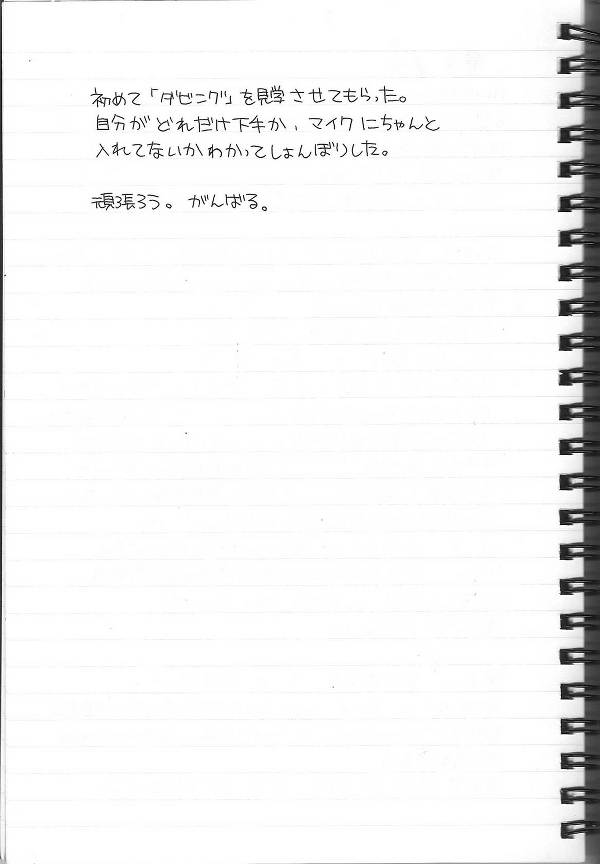 初めて「ダビング」を見学させてもらった。
自分がどれだけ下手か、マイクにちゃんと
入れてないかわかってしょんぼりした。
頑張ろう。がんばる。